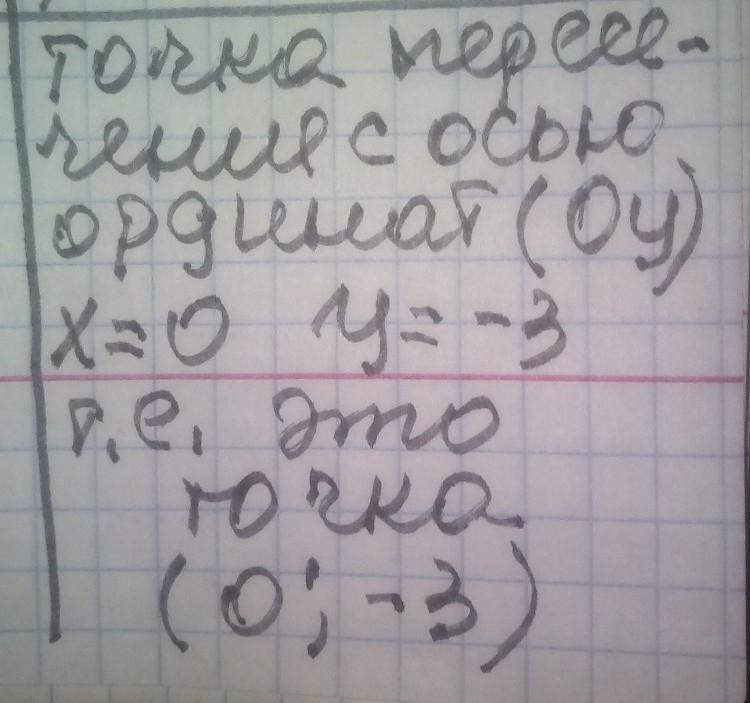 точка пересе-
чения с осью
ординат (Оу)
x=0 y=-3
т.е. это
точка
(0; -3)